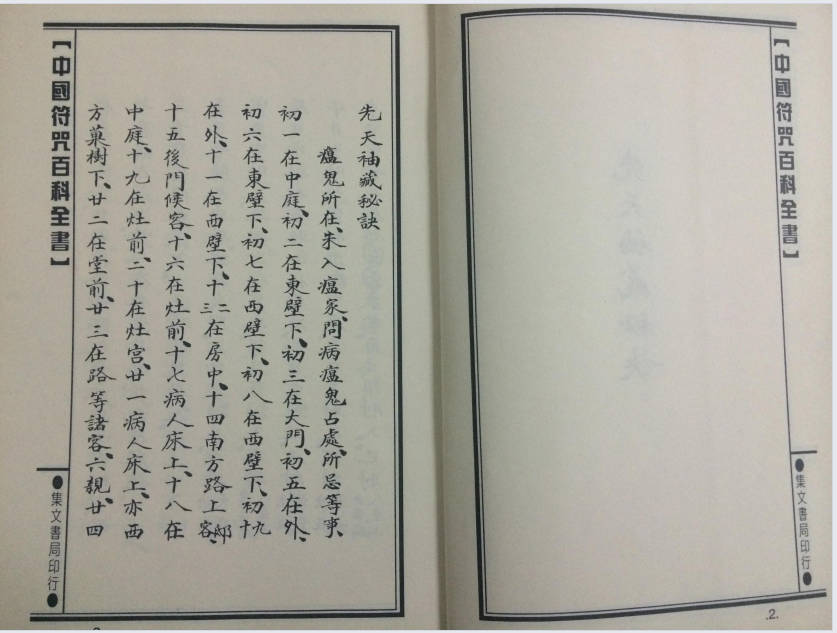 【中國符咒百科全書】
集文書局印行
.2.
先天袖藏秘訣
瘟鬼所在、未入瘟家、問病瘟鬼占處、所忌等事、
初一在中庭、初二在東壁下、初三在大門、初五在外、
初六在東壁下、初七在西壁下、初八在西壁下、初九十
在外、十一在西壁下、十二三在房中、十四南方路上邸客、
十五後門候客、十六在灶前、十七病人床上、十八在
中庭、十九在灶前、二十在灶宮、廿一病人床上、亦西
方菓樹下、廿二在堂前、廿三在路等諸客、六親、廿四
【中國符咒百科全書】
集文書局印行